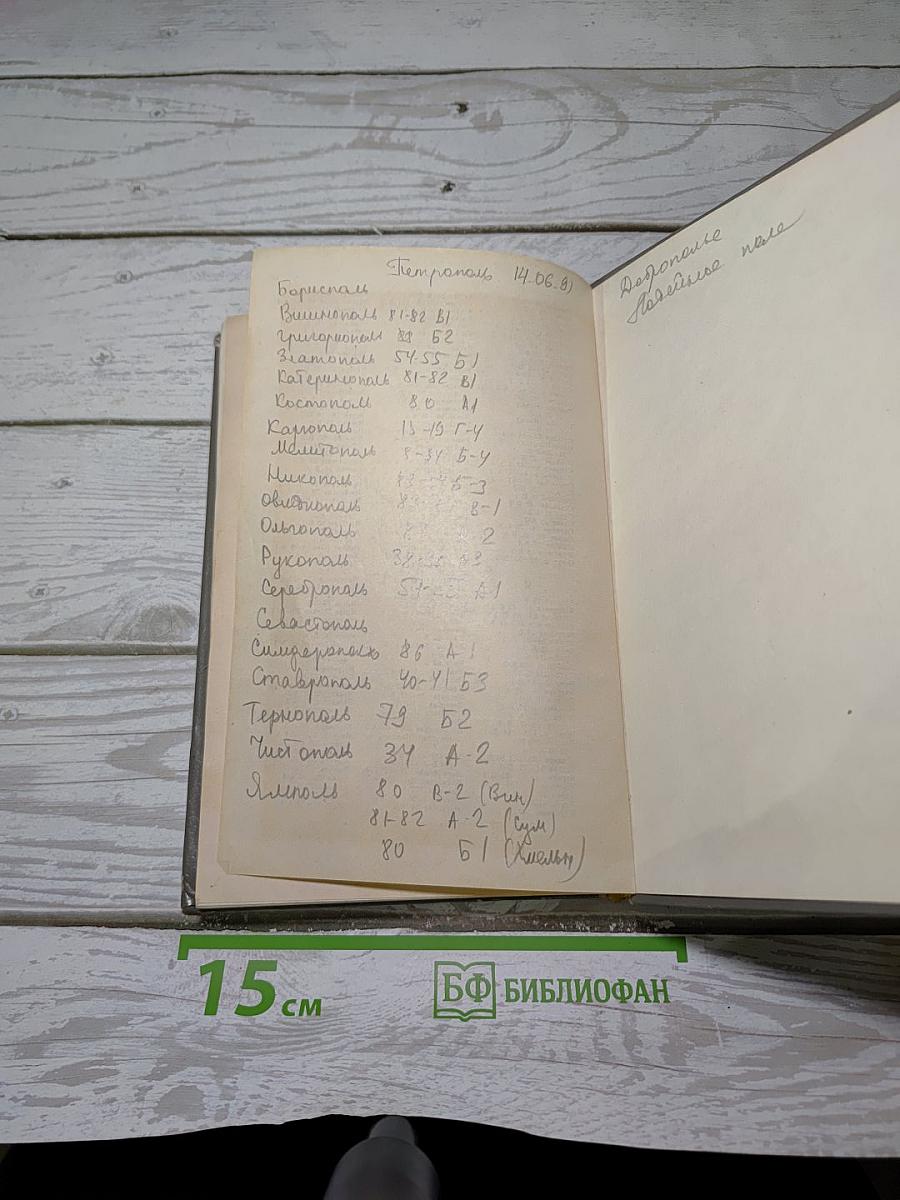 Петрополь 14.06.91
Борисполь
Вишнополь 81-82 В1
Григориополь Б2
Златополь 54-55 Б1
Катеринополь 81-82 В1
Костополь 80 А1
Каргополь 18-19 Г-4
Мелитополь Б-4
Никополь Б-3
Овидиополь В-1
Ольгополь 2
Рукополь
Сереброполь А1
Севастополь
Симферополь 86 А1
Ставрополь 40-41 Б3
Тернополь 79 Б2
Чистополь 34 А-2
Ямполь 80 В-2 (Вин)
81-82 А-2 (Сум)
80 Б1 (Хмельн)
Доброполье
поле
15 см
БФ БИБЛИОФАН